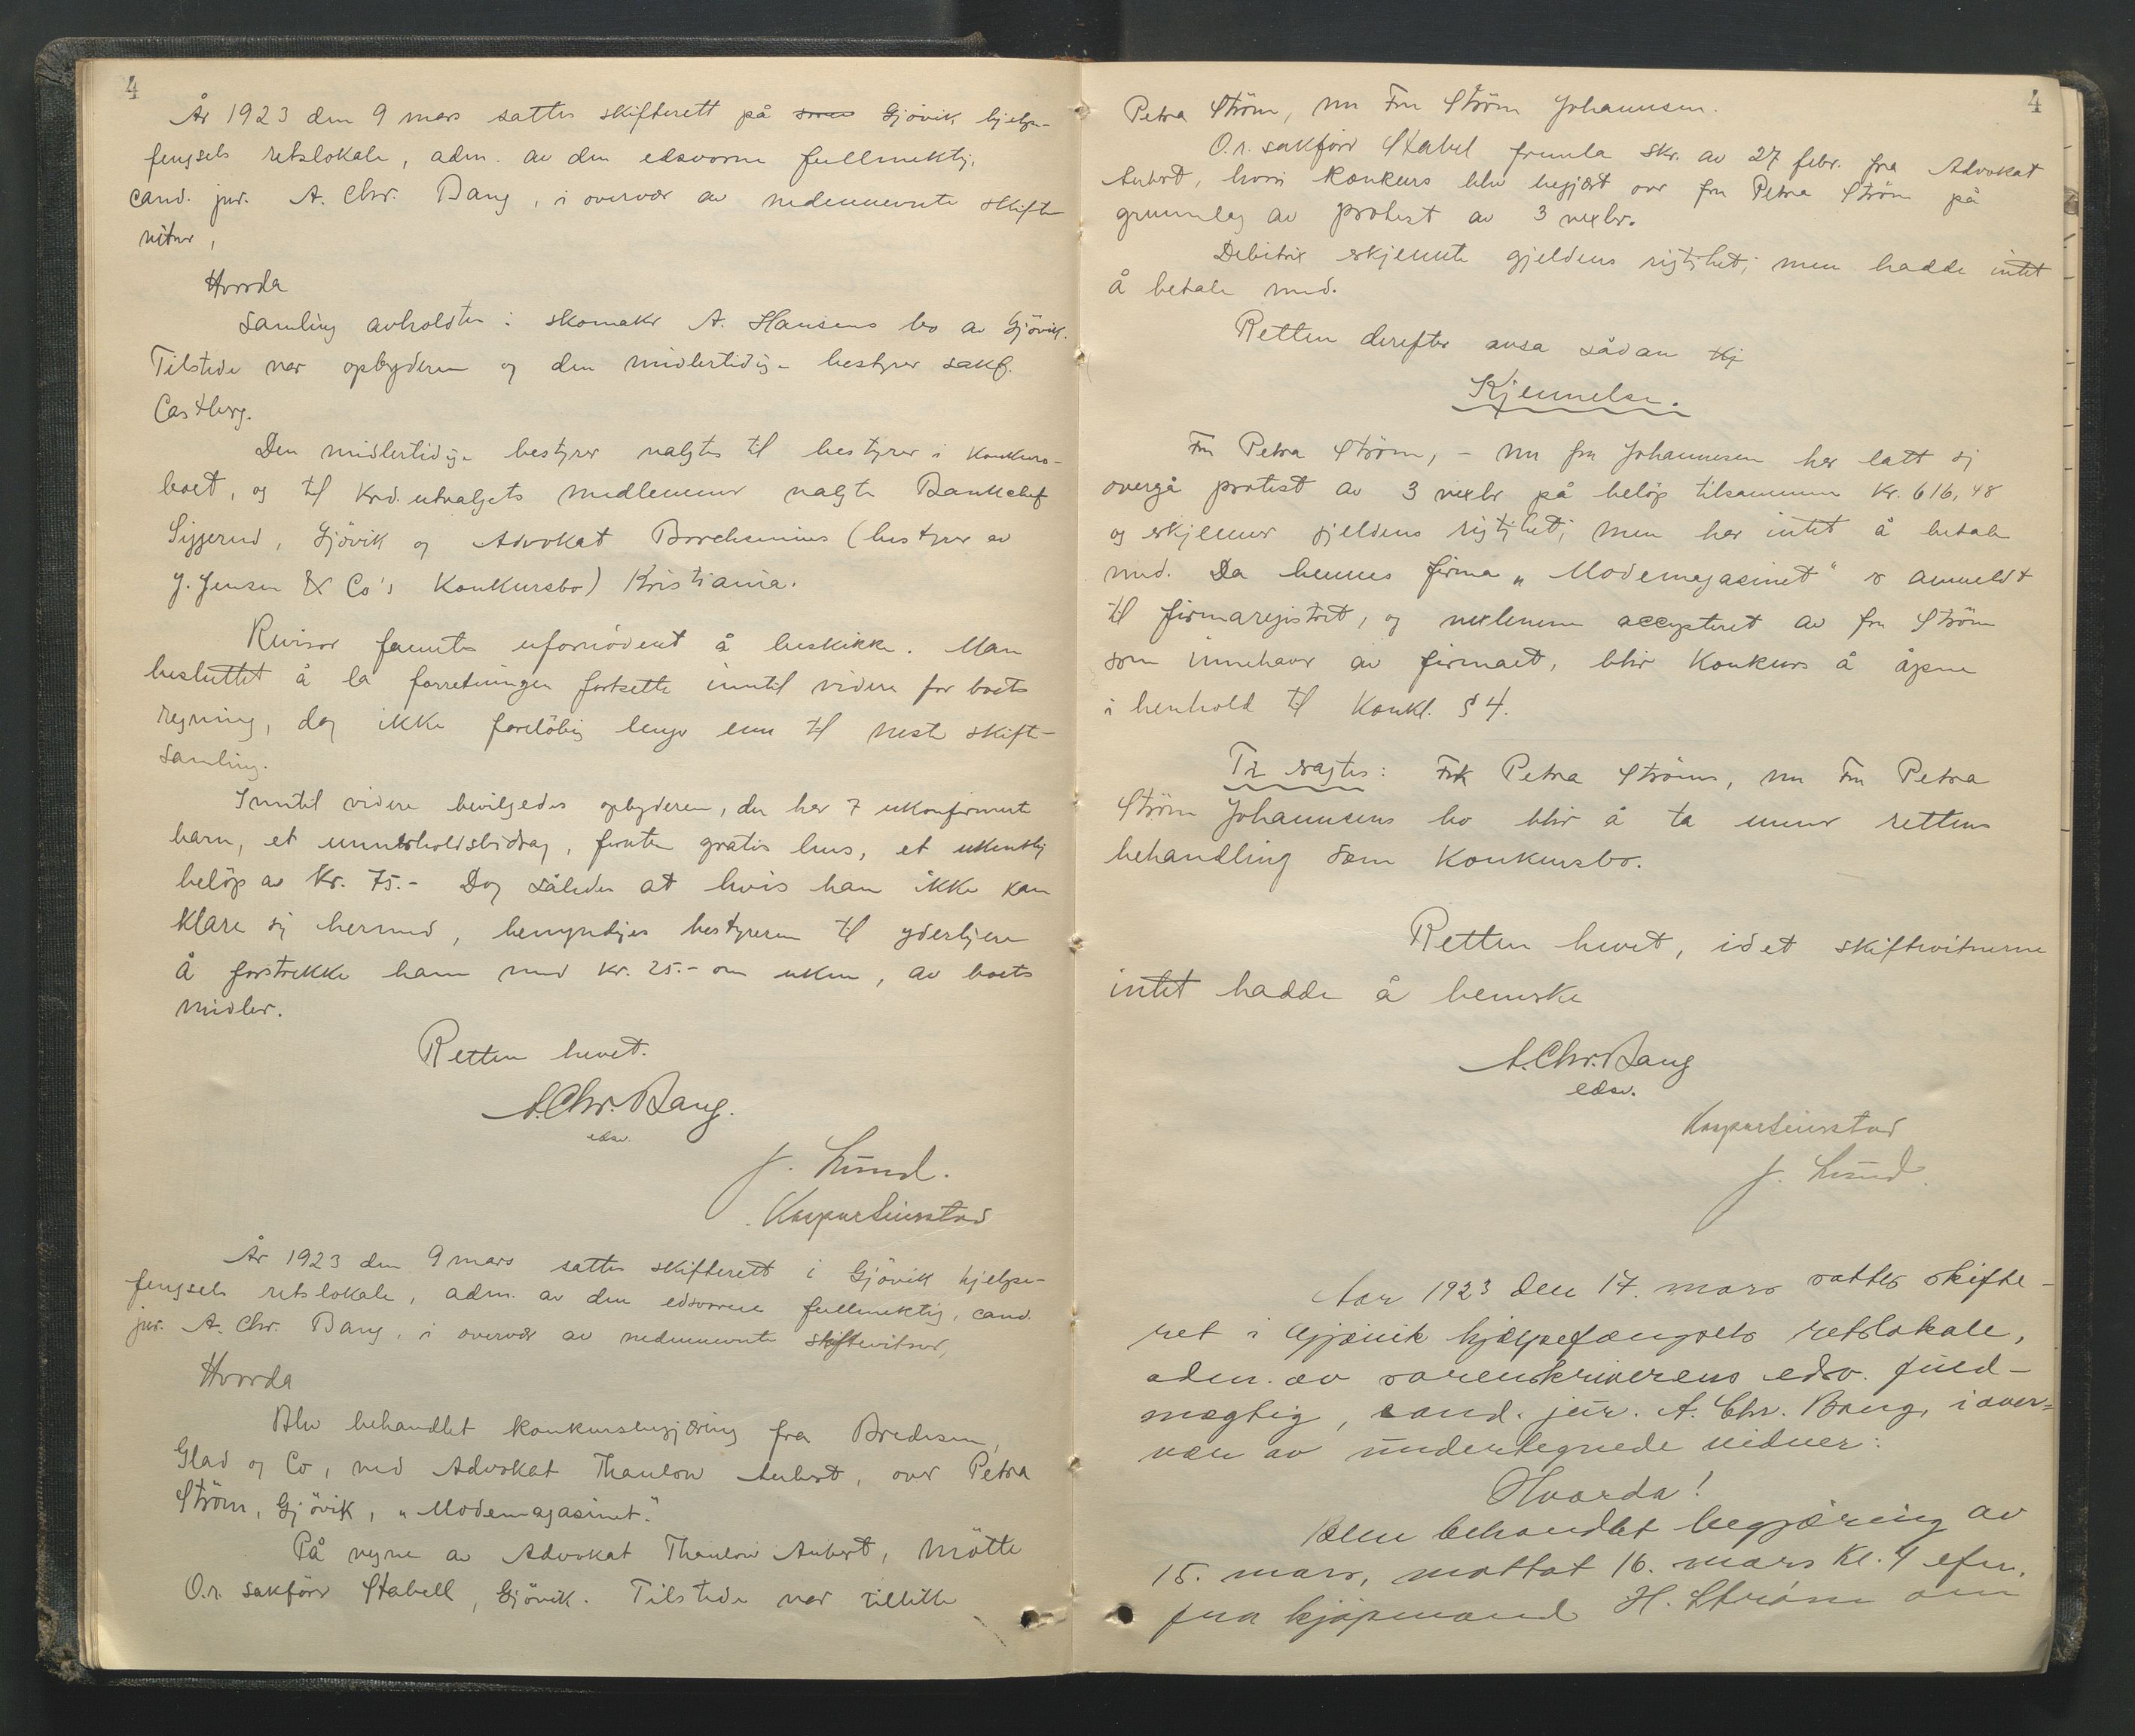 4
År 1923 den 9 mars sattes skifterett på Gjövik hjelpe-
fengsels retslokale, adm. av den edsvorne fullmektig,
cand. jur. A. Chr. Bang, i overvær av nedennevnte skifte
vitner,
Hvorda
Samling avholdtes i skomaker A. Hansens bo av Gjövik.
Tilstede var opbyderen og den midlertidige bestyrer sakf.
Castberg.
Den midlertidige bestyrer valgtes til bestyrer i konkurs-
boet, og til kred.utvalgets medlemmer valgtes Bankchef
Siggerud, Gjövik og Advokat Borchsenius (bestyrer av
J. Jensen & Co's Konkursbo) Kristiania.
Revisor fantes ufornödent å beskikke. Man
besluttet å la forretningen fortsette inntil videre for boets
regning, dog ikke forelöbig lenger enn til neste skifte-
samling.
Inntil videre bevilgedes opbyderen, der har 7 ukonfirmerte
barn, et unnerholdsbidrag, foruten gratis hus, et ukentlig
belöp av Kr. 75.- Dog således at hvis han ikke kan
klare sig hermed, bemyndiges bestyreren til yderligere
å forstrekke ham med kr. 25.- om uken, av boets
midler.
Retten hevet.
A. Chr. Bang.
edsv.
J. Lund.
Kaspar
År 1923 den 9 mars sattes skifterett i Gjövik hjelpe-
fengsels retslokale, adm. av den edsvorne fullmektig, cand.
jur. A. Chr. Bang, i overvær av nedennevnte skiftevitner,
Hvorda
Blev behandlet konkursbegjæring fra Bredesen,
Glad og Co, ved Advokat Thaulow Aubert, over Petra
Ström, Gjövik, "Modemagasinet".
På vegne av Advokat Thaulow Aubert, mötte
O.r. sakförer Stabell, Gjövik. Tilstede var tillike
4
Petra Ström, nu Fru Ström Johannesen.
O.r. sakförer Stabel fremla skr. av 27 febr. fra Advokat
Aubert, hvori konkurs blev begjært over fru Petra Ström på
grunnlag av protest av 3 vexler.
Debitrix erkjennte gjeldens rigtighet; men hadde intet
å betale med.
Retten derefter avsa sådan kj
Kjennelse.
Fru Petra Ström, - nu fru Johannesen har latt sig
overgå protest av 3 vexler på belöp tilsammen Kr. 616,48
og erkjenner gjeldens rigtighet; men har intet å betale
med. Da hennes firma "Modemagasinet" er anmeldt
til firmaregistret, og vexlerne accepteret av fru Ström
som innehaver av firmaet, blir Konkurs å åpne
i henhold til Konkl. § 4.
Ti eragtes: Frk Petra Ströms, nu Fru Petra
Ström Johannesens bo blir å ta unner rettens
behandling som Konkursbo.
Retten hevet, idet skiftevitnerne
intet hadde å bemerke
A. Chr. Bang
edsv.
Kaspar
J. Lund.
Aar 1923 den 17. mars sattes skifte-
ret i Gjøvik hjælpefængsels retslokale,
adm. av sorenskriverens edsv. fuld-
mægtig, cand. jur. A. Chr. Bang, i over=
vær av undertegnede vidner:
Hvorda!
Blev behandlet begjæring av
15. mars, mottat 16. mars Kl. 4 efm.
fra kjøpmand H. Strøm om